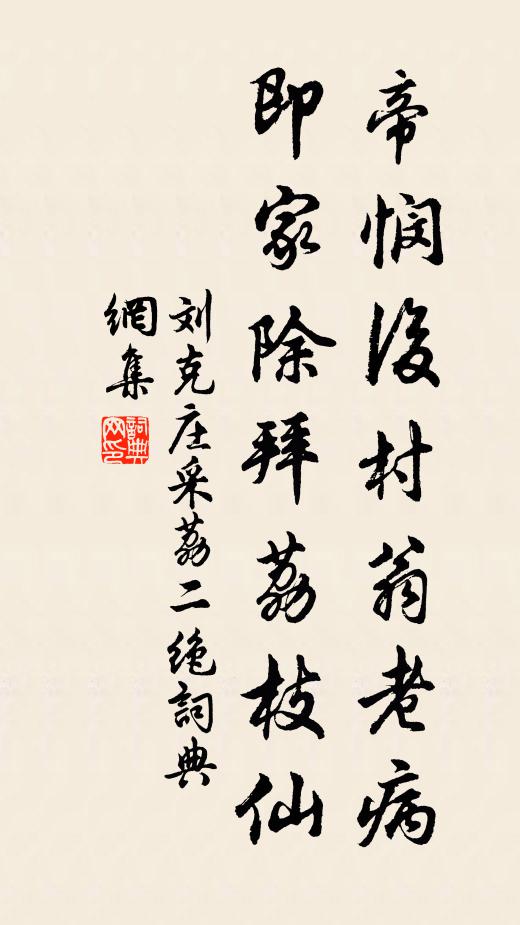 帝悯后村翁老病
即家除拜荔枝仙
刘克庄采荔二绝詞典
網集
詞典网印